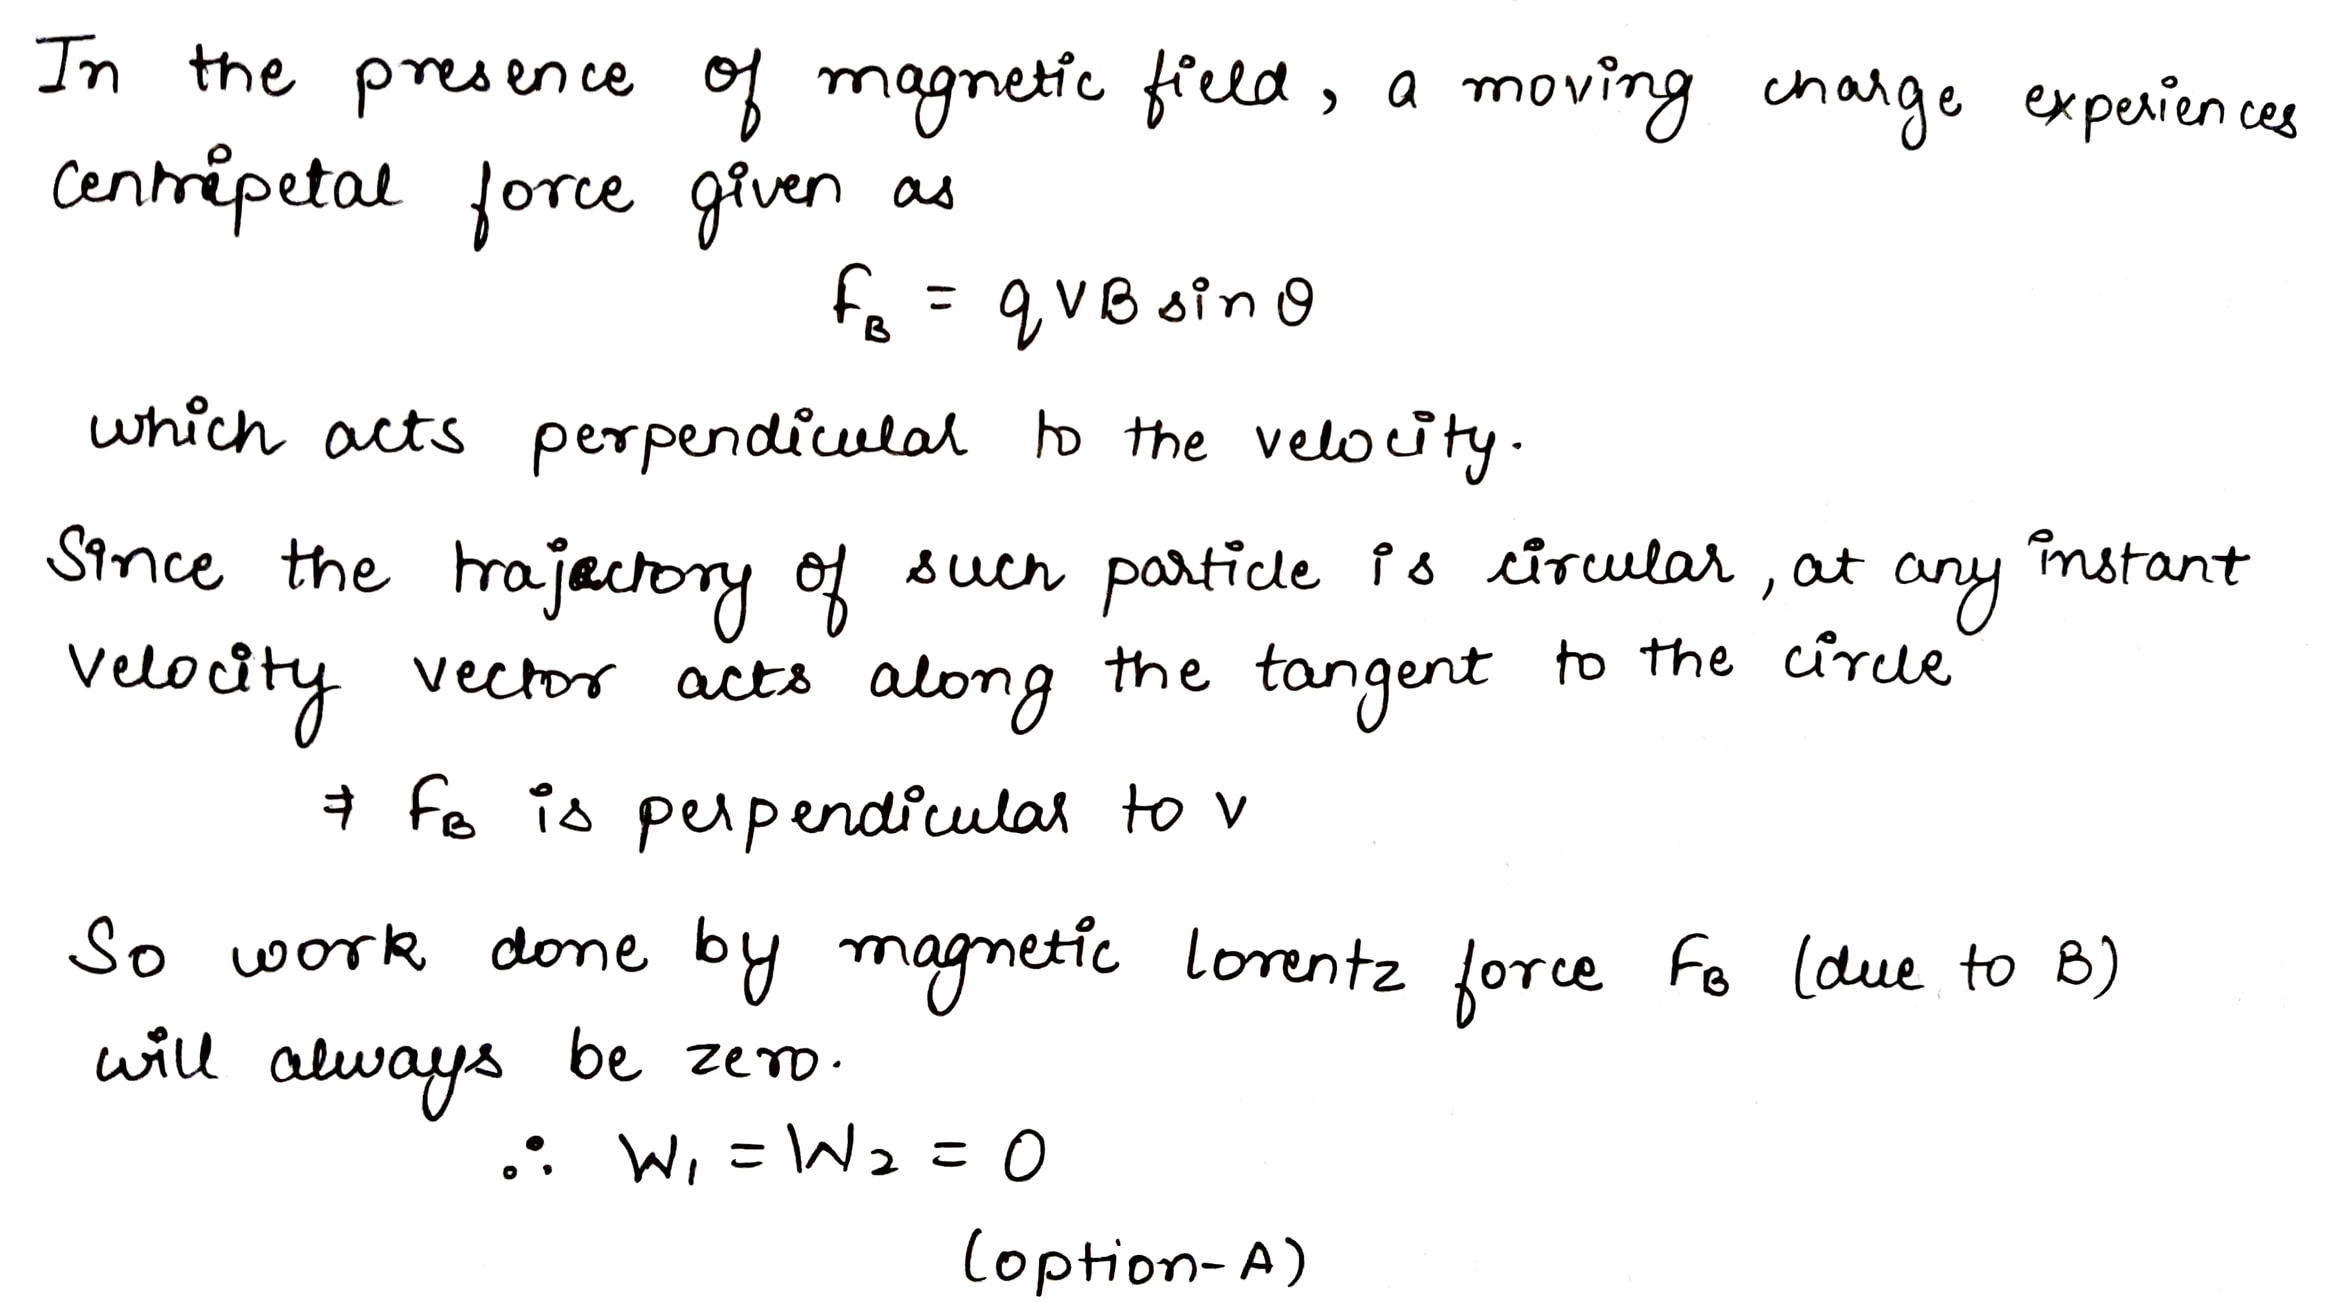 In the presence of magnetic field, a moving charge experiences
centripetal force given as
F_B = qVB sin θ
which acts perpendicular to the velocity.
Since the trajectory of such particle is circular, at any instant
velocity vector acts along the tangent to the circle
⇒ F_B is perpendicular to v
So work done by magnetic lorentz force F_B (due to B)
will always be zero.
∴ W₁ = W₂ = 0
(option-A)